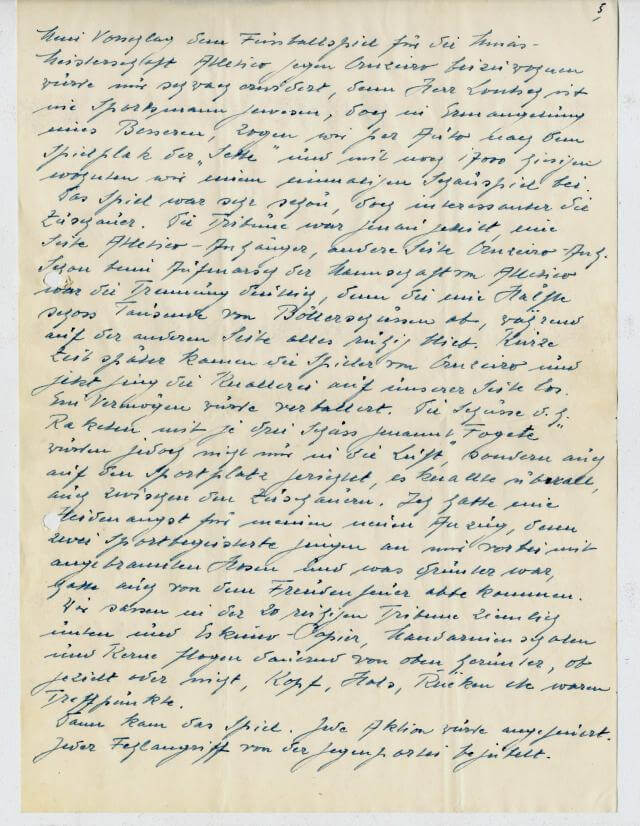 5,
Mein Vorschlag dem Fussballspiel für die Minas-
Meisterschaft Atletico gegen Cruzeiro beizuwohnen
würde mir schwach erwidert, denn Herr ist
nie Sportsmann gewesen, doch in Ermangelung
eines Besseren, zogen wir per Auto nach dem
Spielplatz der „Sette" und mit noch 17000 hiesigen
wohnten wir einem einmaligen Schauspiel bei.
Das Spiel war sehr schön, doch interessanter die
Zuschauer. Die Tribüne war genau geteilt, eine
Seite Atletico-Anhänger, andere Seite Cruzeiro-Anh.
Schon beim Aufmarsch der Mannschaft von Atletico
war die Trennung deutlich, denn die eine Hälfte
schoss Tausende von Böllerschüssen ab, während
auf der anderen Seite alles ruhig blieb. Kurze
Zeit später kamen die Spieler von Cruzeiro und
jetzt ging die Knallerei auf unserer Seite los.
Ein Vermögen wurde verballert. Die Schüsse d.h.
Raketen mit je drei Schuss genannt „Fogete"
wurden jedoch nicht nur in die Luft, sondern auch
auf den Sportplatz gerichtet, es knallte überall,
auch zwischen den Zuschauern. Ich hatte eine
Heidenangst für meinen neuen Anzug, denn
zwei Sportbegeisterte gingen an mir vorbei mit
angebrannten Hosen und was drunter war,
hatte auch von dem Freudenfeuer abbekommen.
Wir sassen in der 20 reihigen Tribüne ziemlich
unten und Eskimo-Papier, Mandarinenschalen
und Kerne flogen dauernd von oben herunter, ob
gezielt oder nicht, Kopf, Hals, Rücken etc waren
Treffpunkte.
Dann kam das Spiel. Jede Aktion würde angefeuert.
Jeder Fehlangriff von der Gegenpartei bejubelt.